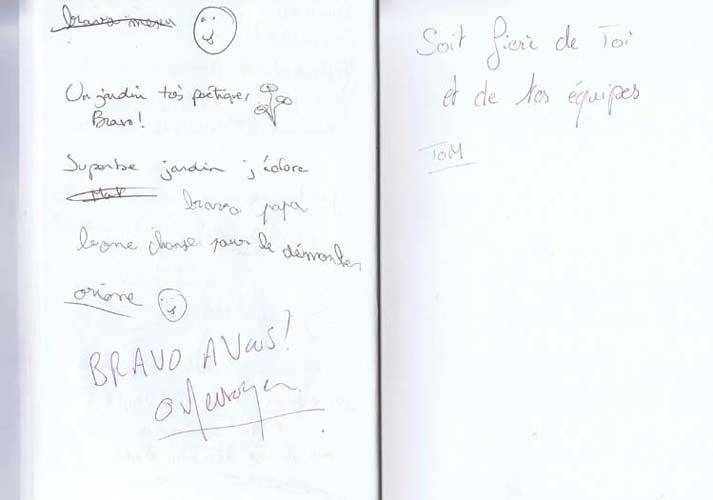 bravo
Un jardin très poétique,
Bravo!
Superbe jardin j'adore
bravo papa
bone chanse pour le démonter
oriane
BRAVO A Vous!
Soit fière de Toi
et de tes équipes
TOM